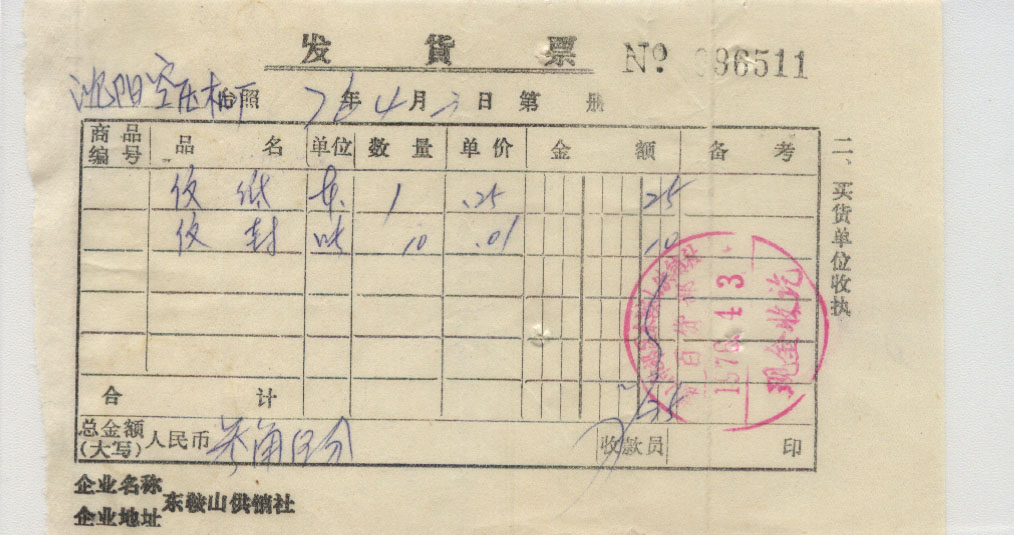 发货票 No 96511
沈阳空压机厂 台照 76年4月3日 第 册
商品编号 品名 单位 数量 单价 金额 备考
纸 本 1 .25 25
封 10 .01 10
合计
总金额(大写) 人民币 叁角伍分 收款员 印
企业名称 东鞍山供销社
企业地址
二、买货单位收执
供销社
百货
1976.4.3
现金收讫